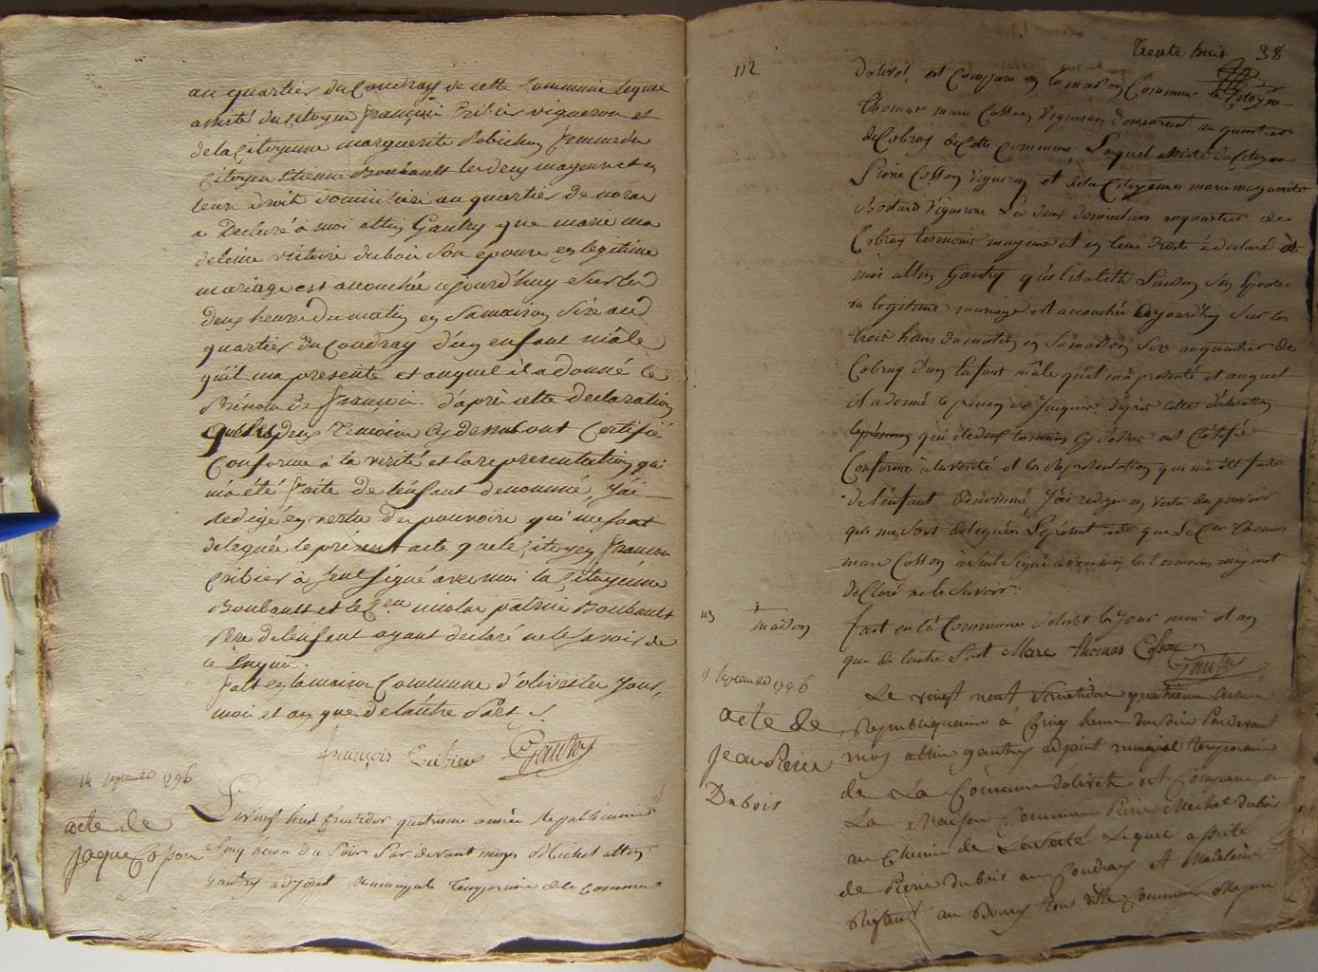 au quartier du Coudray de cette Commune lequel
assisté du citoyen françois vigneron et
de la Citoyenne marguerite Robichon femme du
Citoyen Etienne Boubault les deux majeurs et en
leur droit domicilier au quartier de
a Declaré à moi altin Gautry que marie ma
deleine victoire dubois son epouse en legitime
mariage est accouchée aujourd'huy sur les
deux heures du matin en sa maison sise aud
quartier du Coudray d'un enfant mâle
qu'il ma presenté et auquel il a donné le
Prénom de françois. d'après cette declaration
que les deux Temoins cy dessus ont Certifié
Conforme à la verité et la representation qui
m'a été faite de l'enfant denommé, j'ai
redigé en vertu des pouvoirs qui me sont
delegués le present acte que le Citoyen francois
à seul signé avec moi la Citoyenne
Boubault et le Cen nicolas patrice Boubault
Pere de l'enfant ayant declaré ne le savoir de
ce Enquis.
fait en la maison Commune d'olivet les Jour,
mois et an que de l'autre Part.
françois Gautry
14 septembre 1796
acte de
Jaque Cosson
Le vingt huit fructidor quatrieme année Republicaine
cinq heures du soir Par devant moy Michel altin
Gautry adjoint municipale Temporaire de la Commune
Trente huit 38
112
dolivet, est Comparu en la maison Commune le Citoyen
Thomas marc Cosson Vigneron demeurant au quartier
de Cobray de Cette Commune, Lequel assisté du Citoyen
Pierre Cosson Vigneron et de la Citoyenne marie marguerite
Vigneronne Les deux domiciliers au quartier de
Cobray temoins majeurs et en leurs Droits a declaré à
moi altin Gautry qu'Elisabeth Landon son Epouse
en legitime mariage est accouchée aujourd'huy sur les
trois heures du matin en sa maison sise au quartier de
Cobray d'un Enfant mâle qu'il m'a presenté et auquel
il a donné le prenom de Jacques. d'après cette declaration
que les deux temoins cy dessus ont Certifié
Conforme à la verité et la Representation qui m'a été faite
de l'enfant denommé, J'ai redigé en vertu des pouvoirs
qui me sont delegués Le present acte que Le Cen Thomas
marc Cosson a seul signé avec moi les temoins ayant
declaré ne le Savoir.
fait en la Commune d'olivet les Jour mois et an
que de lautre Part Marc thomas Cosson
Gautry
113
maison
septembre 1796
acte de
Jean Pierre
Dubois
Le vingt neuf fructidor quatrieme année
Republiquaine à Cinq heures du soir Pardevant
moy altin gautry adjoint municipal temporaire
de La Commune dolivet est Comparu en
La Maison Commune Pierre Michel Dubois
au Chemin de Lequel assisté
de Pierre Dubois au Coudray et Madeleine
au Bourg tous de cette Commune Majeur